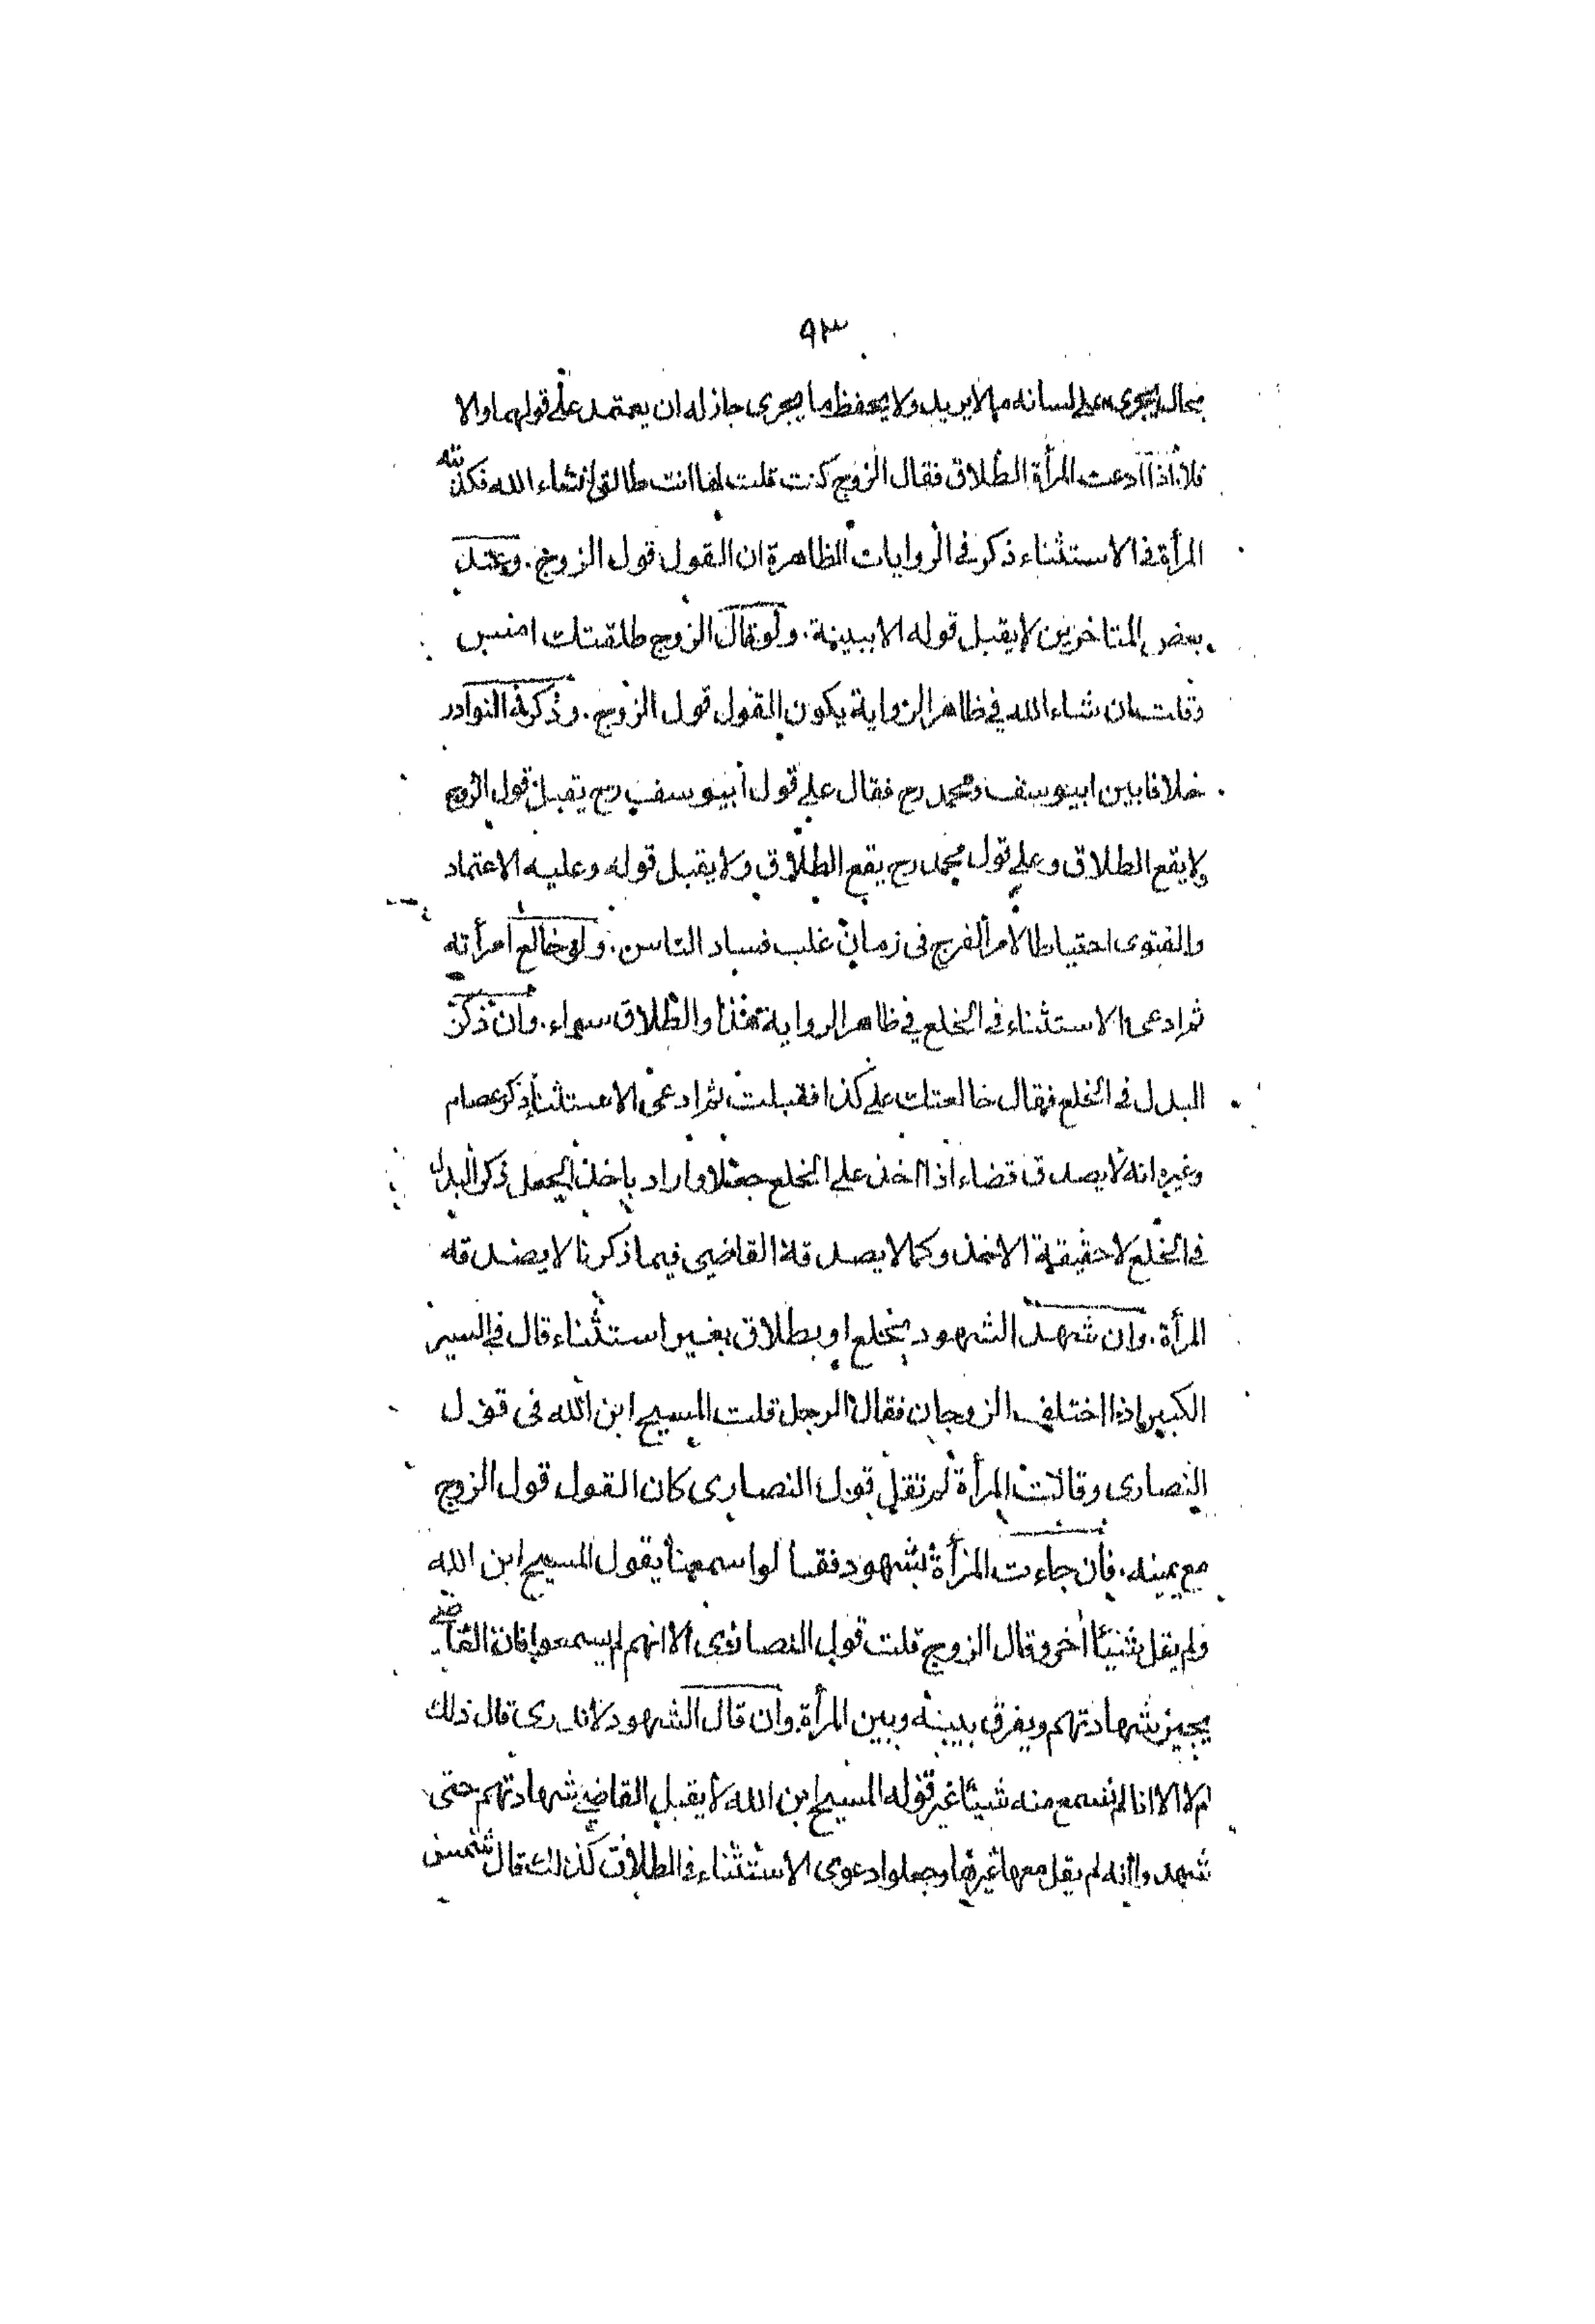 ٩٣
بحال يجرى على لسانه ما لا يريد ولا يحفظ ما يجرى جاز له ان يعتمد على قولهما والا
فلا. اذا ادعت المرأة الطلاق فقال الزوج كنت قلت لها انت طالق انشاء الله فكذبته
المرأة فى الاستثناء ذكر فى الروايات الظاهرة ان القول قول الزوج. وعند
بعض المتاخرين لا يقبل قوله الا ببينة. ولو قال الزوج طلقتك امس
وقلت ان شاء الله في ظاهر الرواية يكون القول قول الزوج. وذكر فى النوادر
خلافا بين ابيوسف ومحمد رح فقال على قول أبيوسف رح يقبل قول الزوج
ولا يقع الطلاق وعلى قول محمد رح يقع الطلاق ولا يقبل قوله وعليه الاعتماد
والفتوى احتياطا لأمر الفرج فى زمان غلب فساد الناس. ولو خالع امرأته
ثم ادعى الاستثناء فى الخلع في ظاهر الرواية هذا والطلاق سواء. وان ذكر
البدل فى الخلع فقال خالعتك على كذا فقبلت ثم ادعى الاستثناء ذكر عصام
وغيره انه لا يصدق قضاء اذا اخذ على الخلع جعلا واراد باخذ الجعل ذكر البدل
فى الخلع لا حقيقة الاخذ وكما لا يصدقه القاضي فيما ذكرنا لا يصدقه
المرأة. وان شهد الشهود بخلع او بطلاق بغير استثناء قال فى السير
الكبير اذا اختلف الزوجان فقال الرجل قلت المسيح ابن الله فى قول
النصارى وقالت المرأة لم تقل قول النصارى كان القول قول الزوج
مع يمينه. فأن جاءت المرأة بشهود فقالوا سمعنا يقول المسيح ابن الله
ولم يقل شيئا أخر وقال الزوج قلت قول النصارى الا انهم لم يسمعوا فان القاضي
يجيز شهادتهم ويفرق بينه وبين المرأة. وان قال الشهود لا ندرى قال ذلك
ام لا الا انا لم نسمع منه شيئا غير قوله المسيح ابن الله لا يقبل القاضي شهادتهم حتى
شهدوا انه لم يقل معها غيرها وجعلوا دعوى الاستثناء فى الطلاق كذلك قال شمس